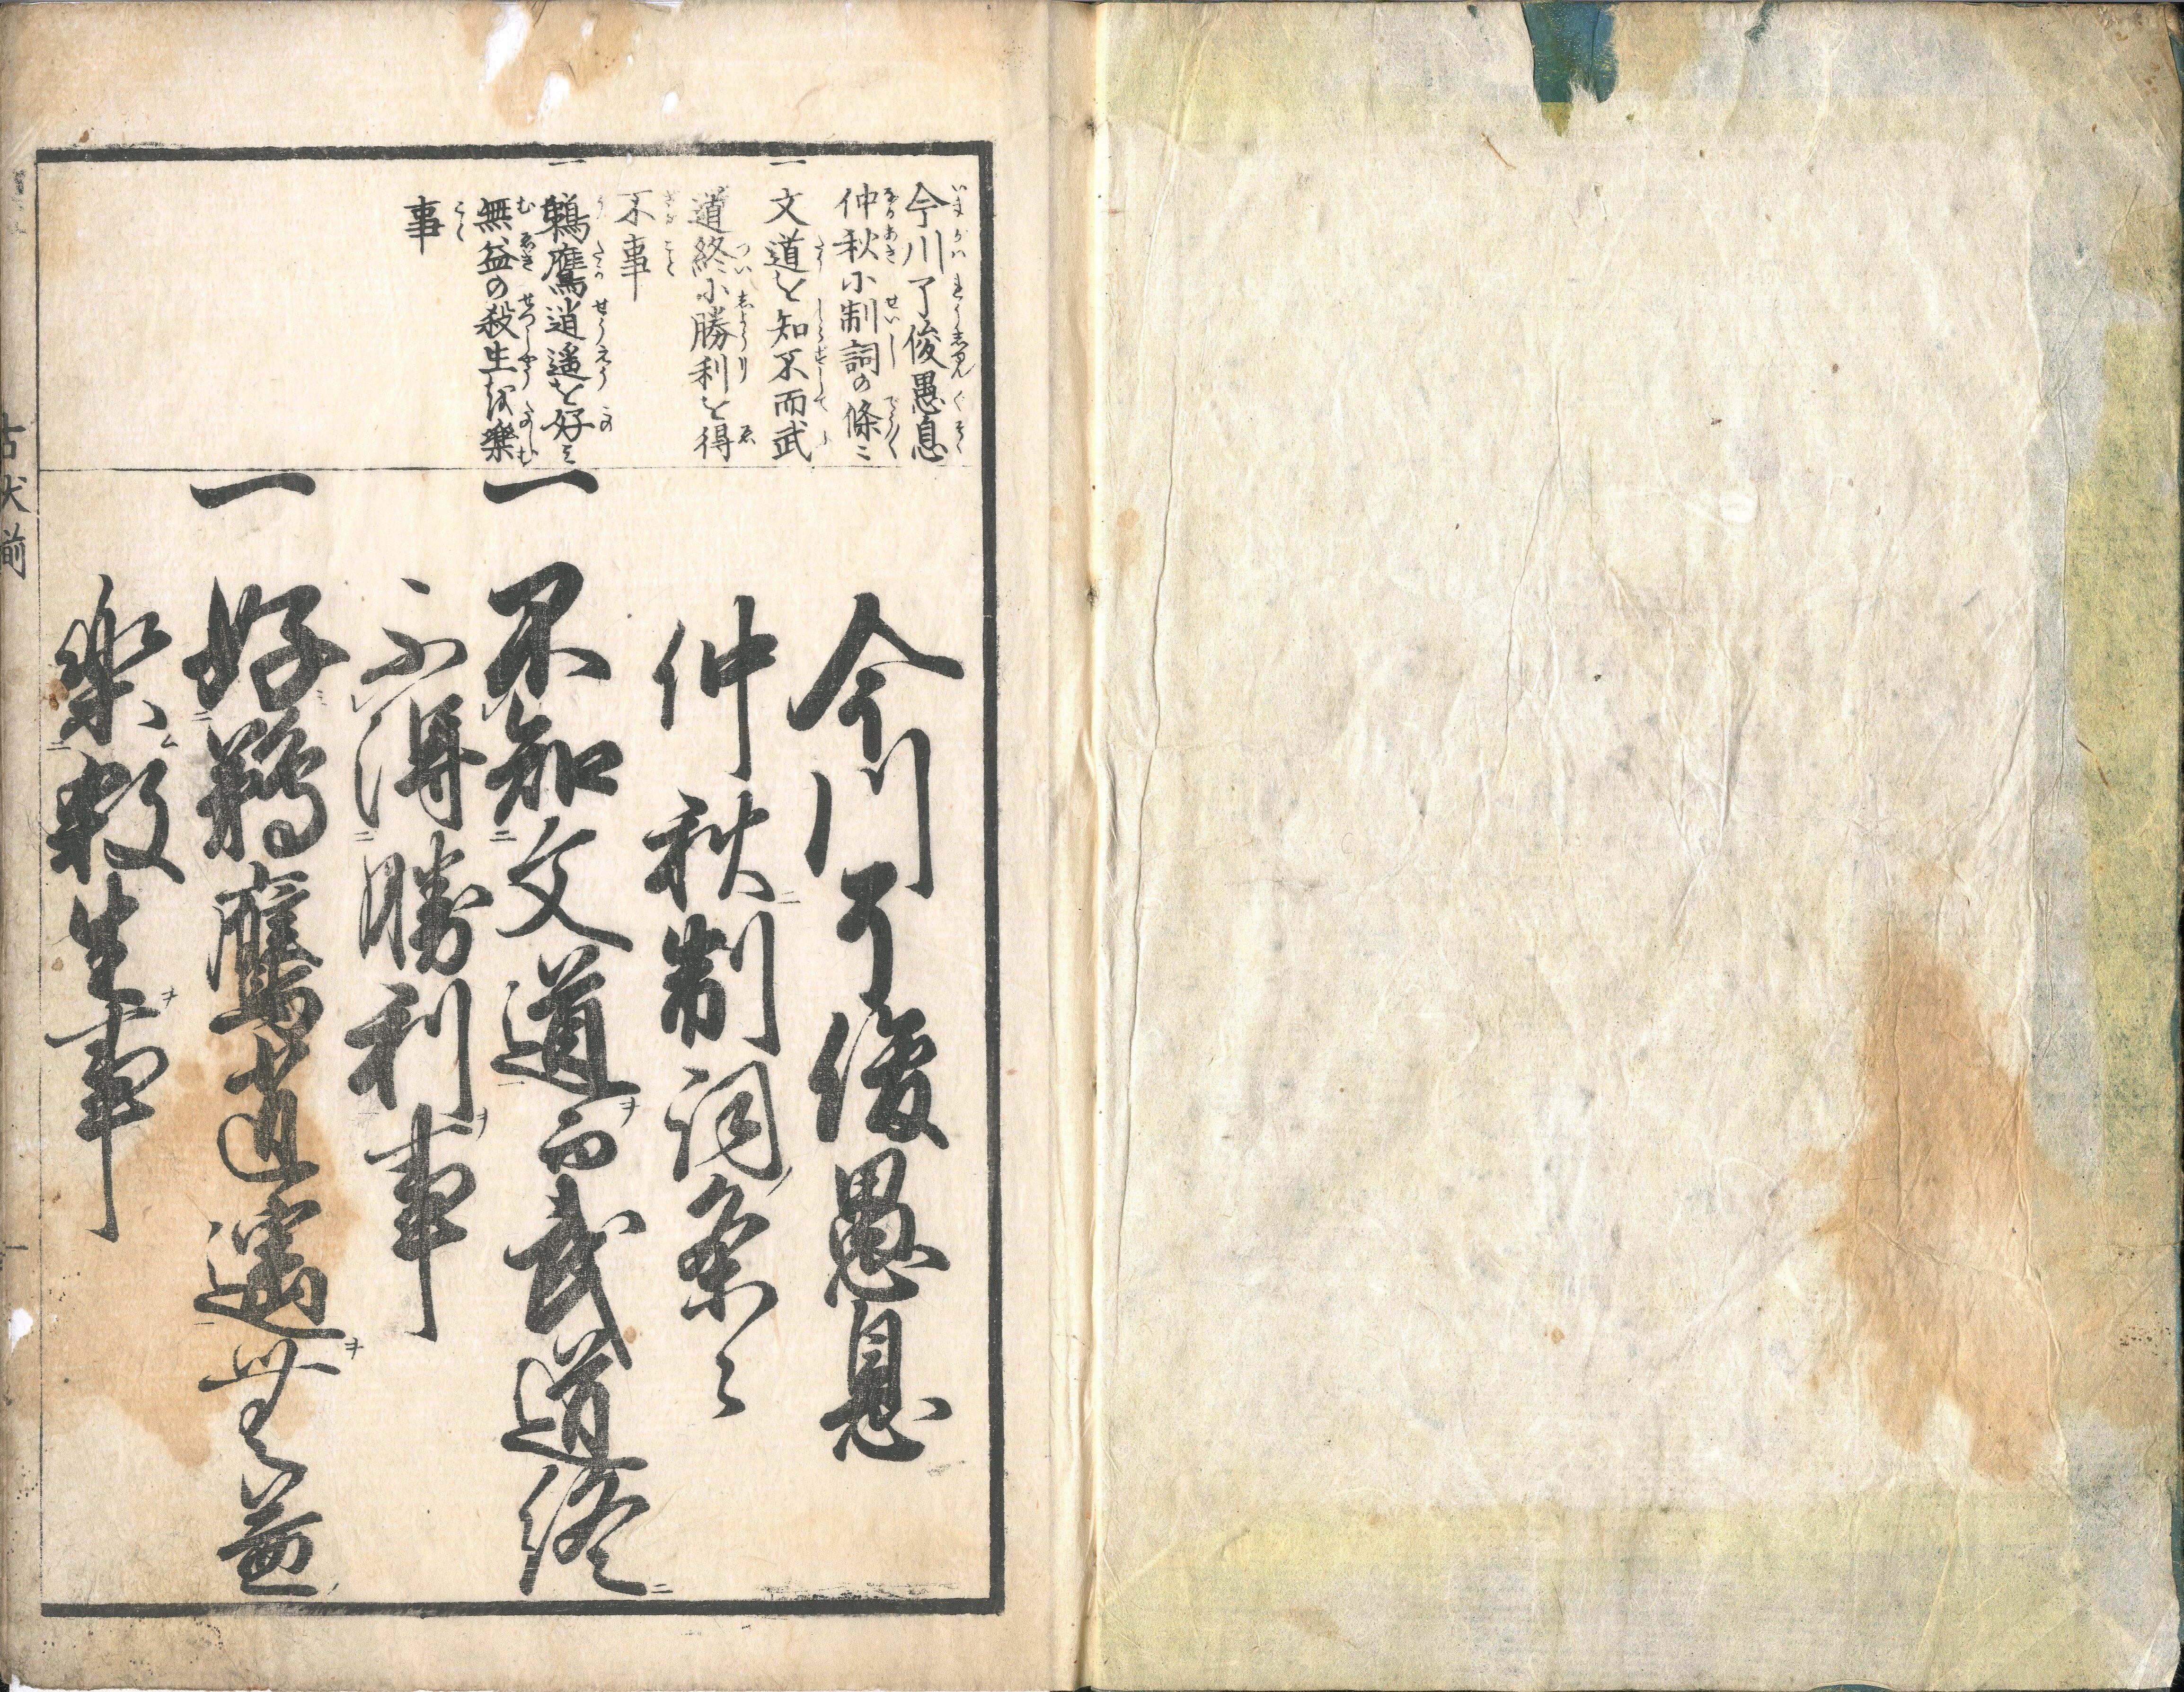 今川了俊愚息
仲秋尓制詞の條〻
一 文道を知不而武
道終尓勝利を得
不事
一 鵜鷹逍遥を好ミ
無益の殺生を樂
事
今川了俊愚息
仲秋制詞条〻
一 不知文道而武道終
不得勝利事
一 好鵜鷹逍遥無益
樂殺生事